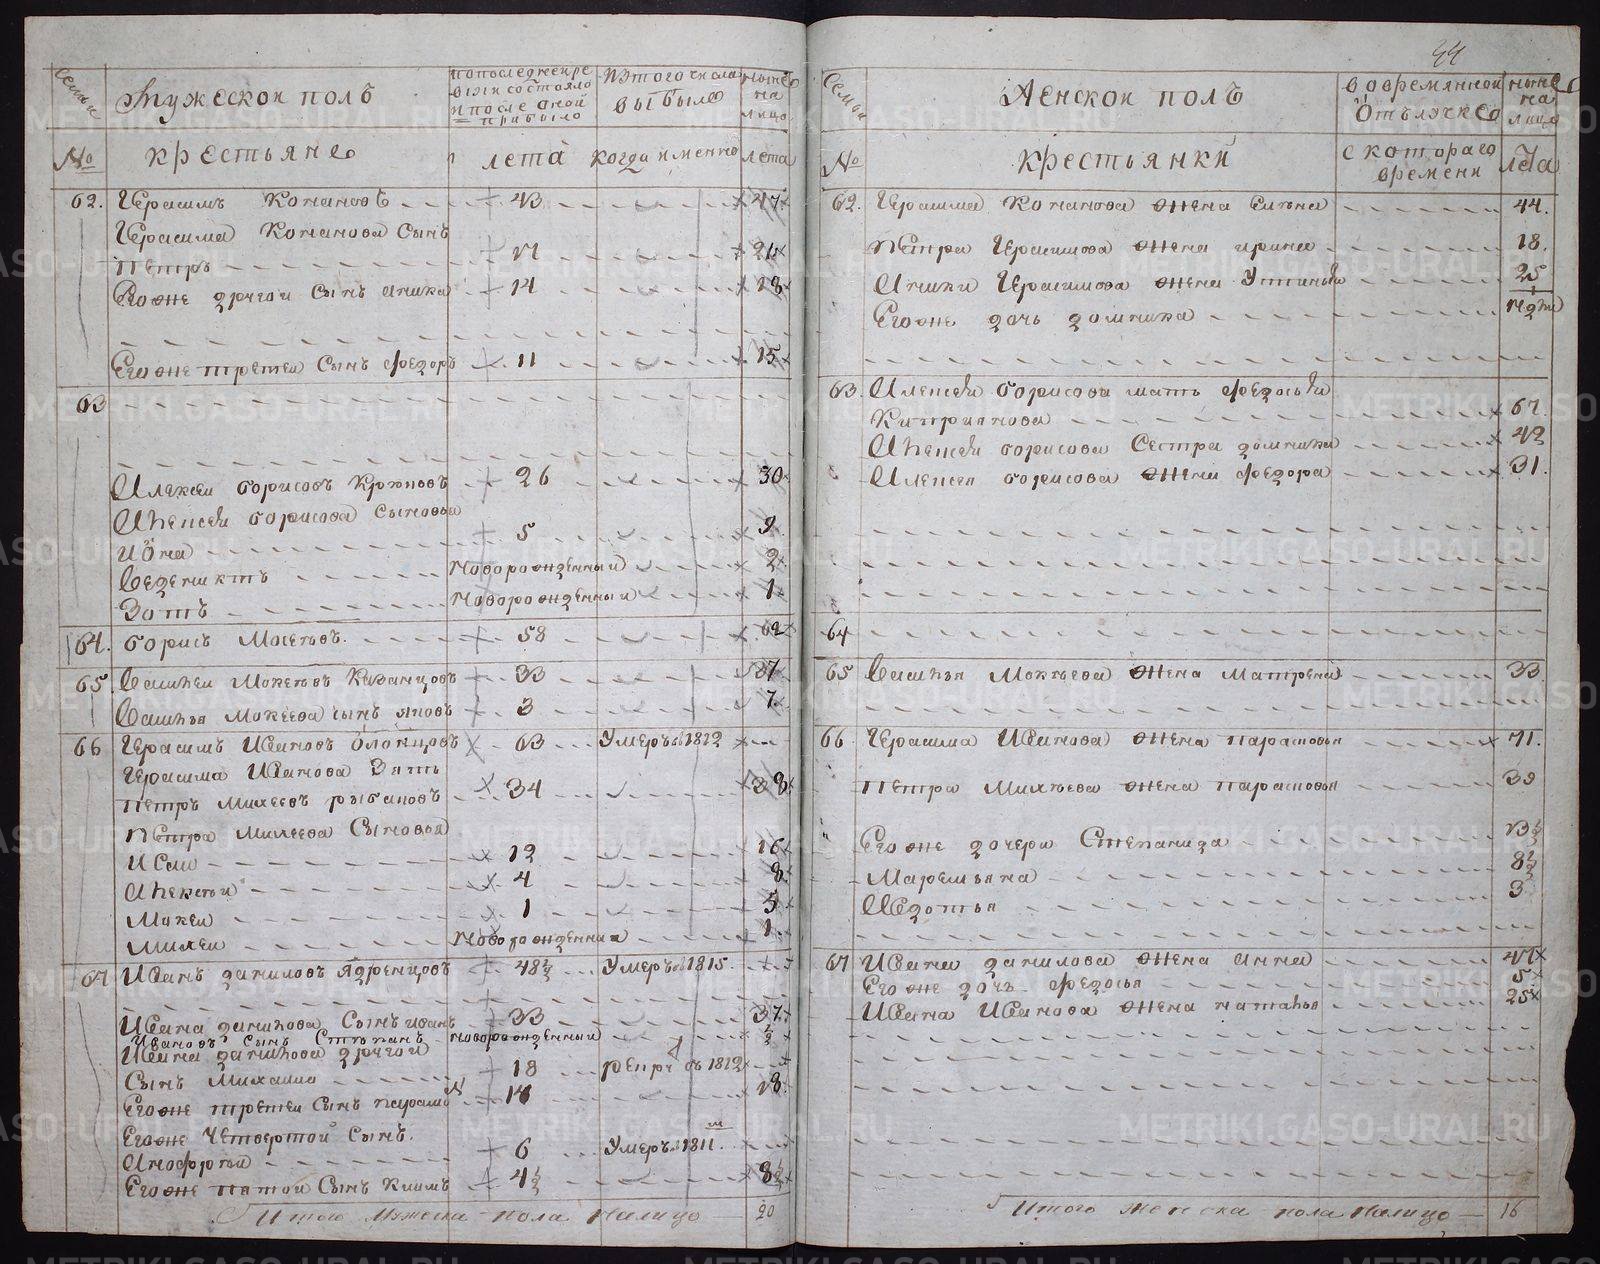 44
Семьи
Мужескои полъ
попоследнеи ре
визи состояло
и после оной
прибыло
изтого числа
выбыло
ныне
на
лицо
№
крестьяне
лета
когда именно
лета
62. Герасимъ Конановъ 43 47
Герасима Конанова Сынъ
Петръ 17 21
Егоже другои Сынъ Аника 14 18
Егоже третеи Сынъ Федоръ 11 15
63
Алексеи борисовъ 26 30
Алексея борисова Сыновья
Иона 5 9
Веденихтъ Новорожденный 2
Зотъ Новорожденный 1
64. борисъ Мокеевъ 58 62
65. Василеи Мокеевъ Казанцовъ 33 37
Василья Мокеева сынъ яковъ 3 7
66 Герасимъ Ивановъ Олонцовъ 63 Умеръ в 1812
Герасима Иванова Зять
Петръ Михеевъ рыбаковъ 34 38
Петра Михеева Сыновья
Исаи 12 16
Алексеи 4 8
Мокеи 1 5
Михеи Новорожденныи 1
67 Иванъ даниловъ Ядренцовъ 48½ Умеръ в 1815.
Ивана данилова Сынъ иванъ 33 37
Ивановъ Сынъ Степанъ новорожденный ½
Ивана данилова другои
Сынъ Михаило 18 рекрутъ 1812
Егоже третеи Сынъ 14 18
Егоже Четвертой Сынъ
Анофреи 6 Умеръ в 1811.
Егоже пятои Сынъ Климъ 4½ 8½
Итого Мужеска пола Налицо 20
Семьи
Женскои полъ
вовремянной
Отълучке
ныне
на
лицо
№
крестьянки
с котораго
времени
лета
62. Герасима Конанова жена Елена 44.
Петра Герасимова жена ирина 18.
Аники Герасимова жена Устинья 25
Егоже дочь домника
63. Алексея борисова мать Федосья
Киприянова 67.
Алексея борисова Сестра домника 42
Алексея борисова жена Федора 31.
64
65 Василья Мокеева жена Матрена 33
66. Герасима Иванова жена парасковья 71.
Петра Михеева жена парасковья 39
Егоже дочери Степанида 13½
Маремьяна 8½
Авдотья 3
67 Ивана данилова жена анна 47
Егоже дочь Федосья 5
Ивана Иванова жена наталья 25
Итого женска пола Налицо 16
METRIKI.GASO-URAL.RU